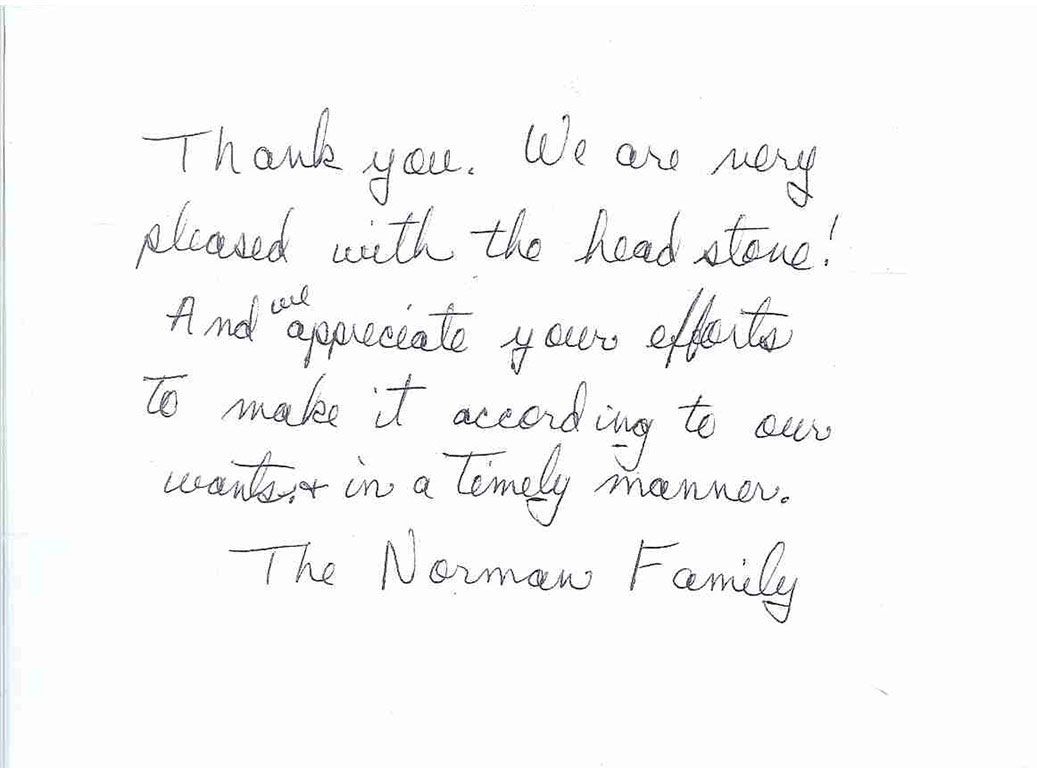 Thank you. We are very
pleased with the head stone!
And we appreciate your efforts
to make it according to our
wants, & in a timely manner.
The Norman Family